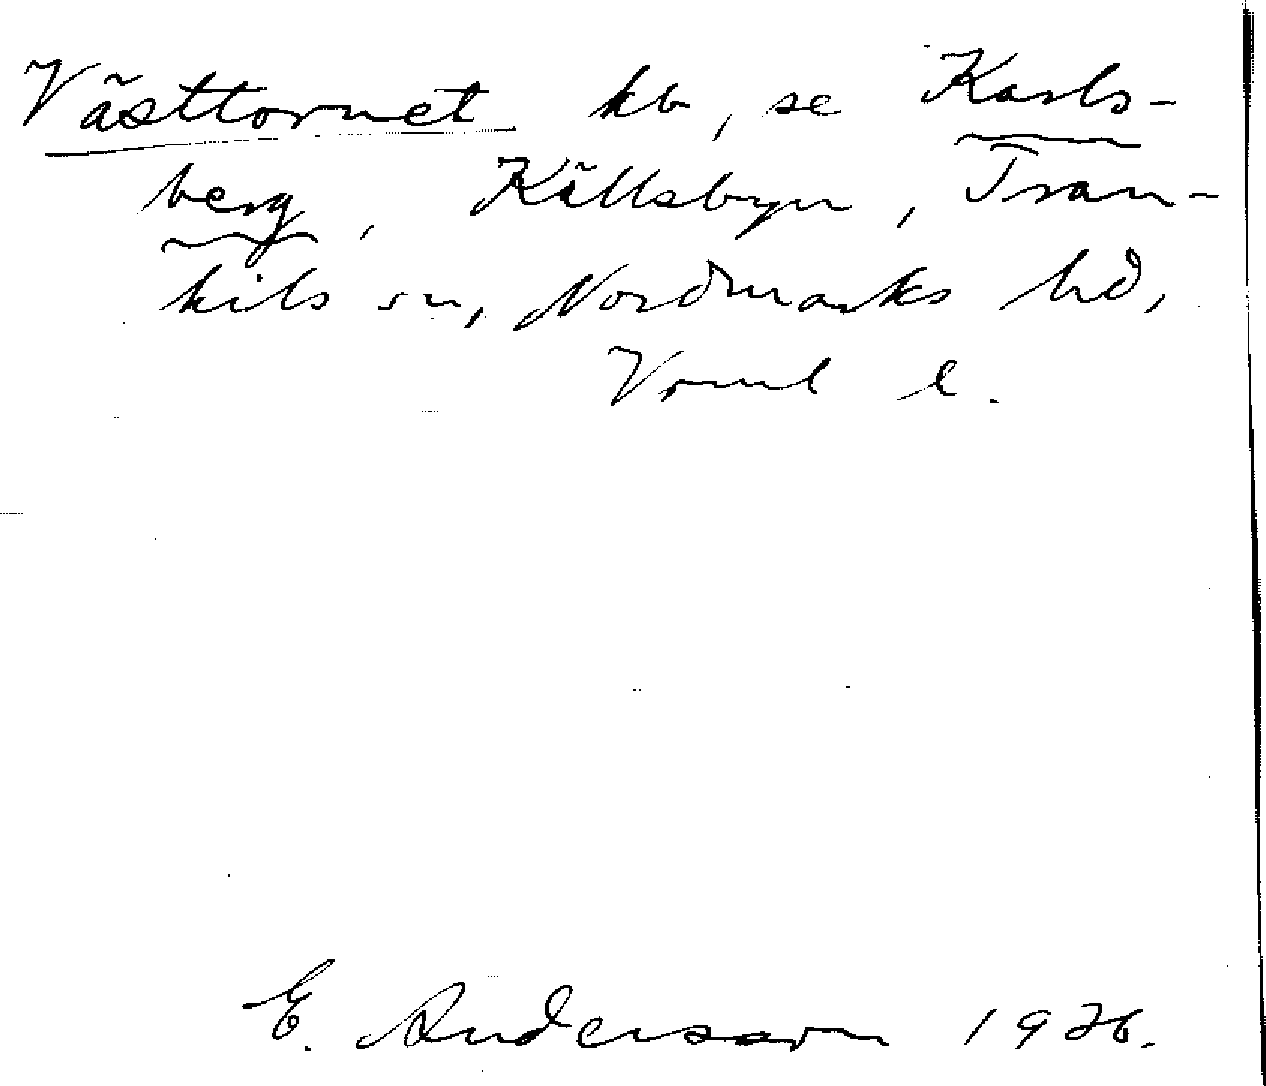 Västtornet hb, se Karls-
berg, Källsbyn, Tran-
kils sn, Nordmarks hd,
Vrml l.
E. Andersson 1926.